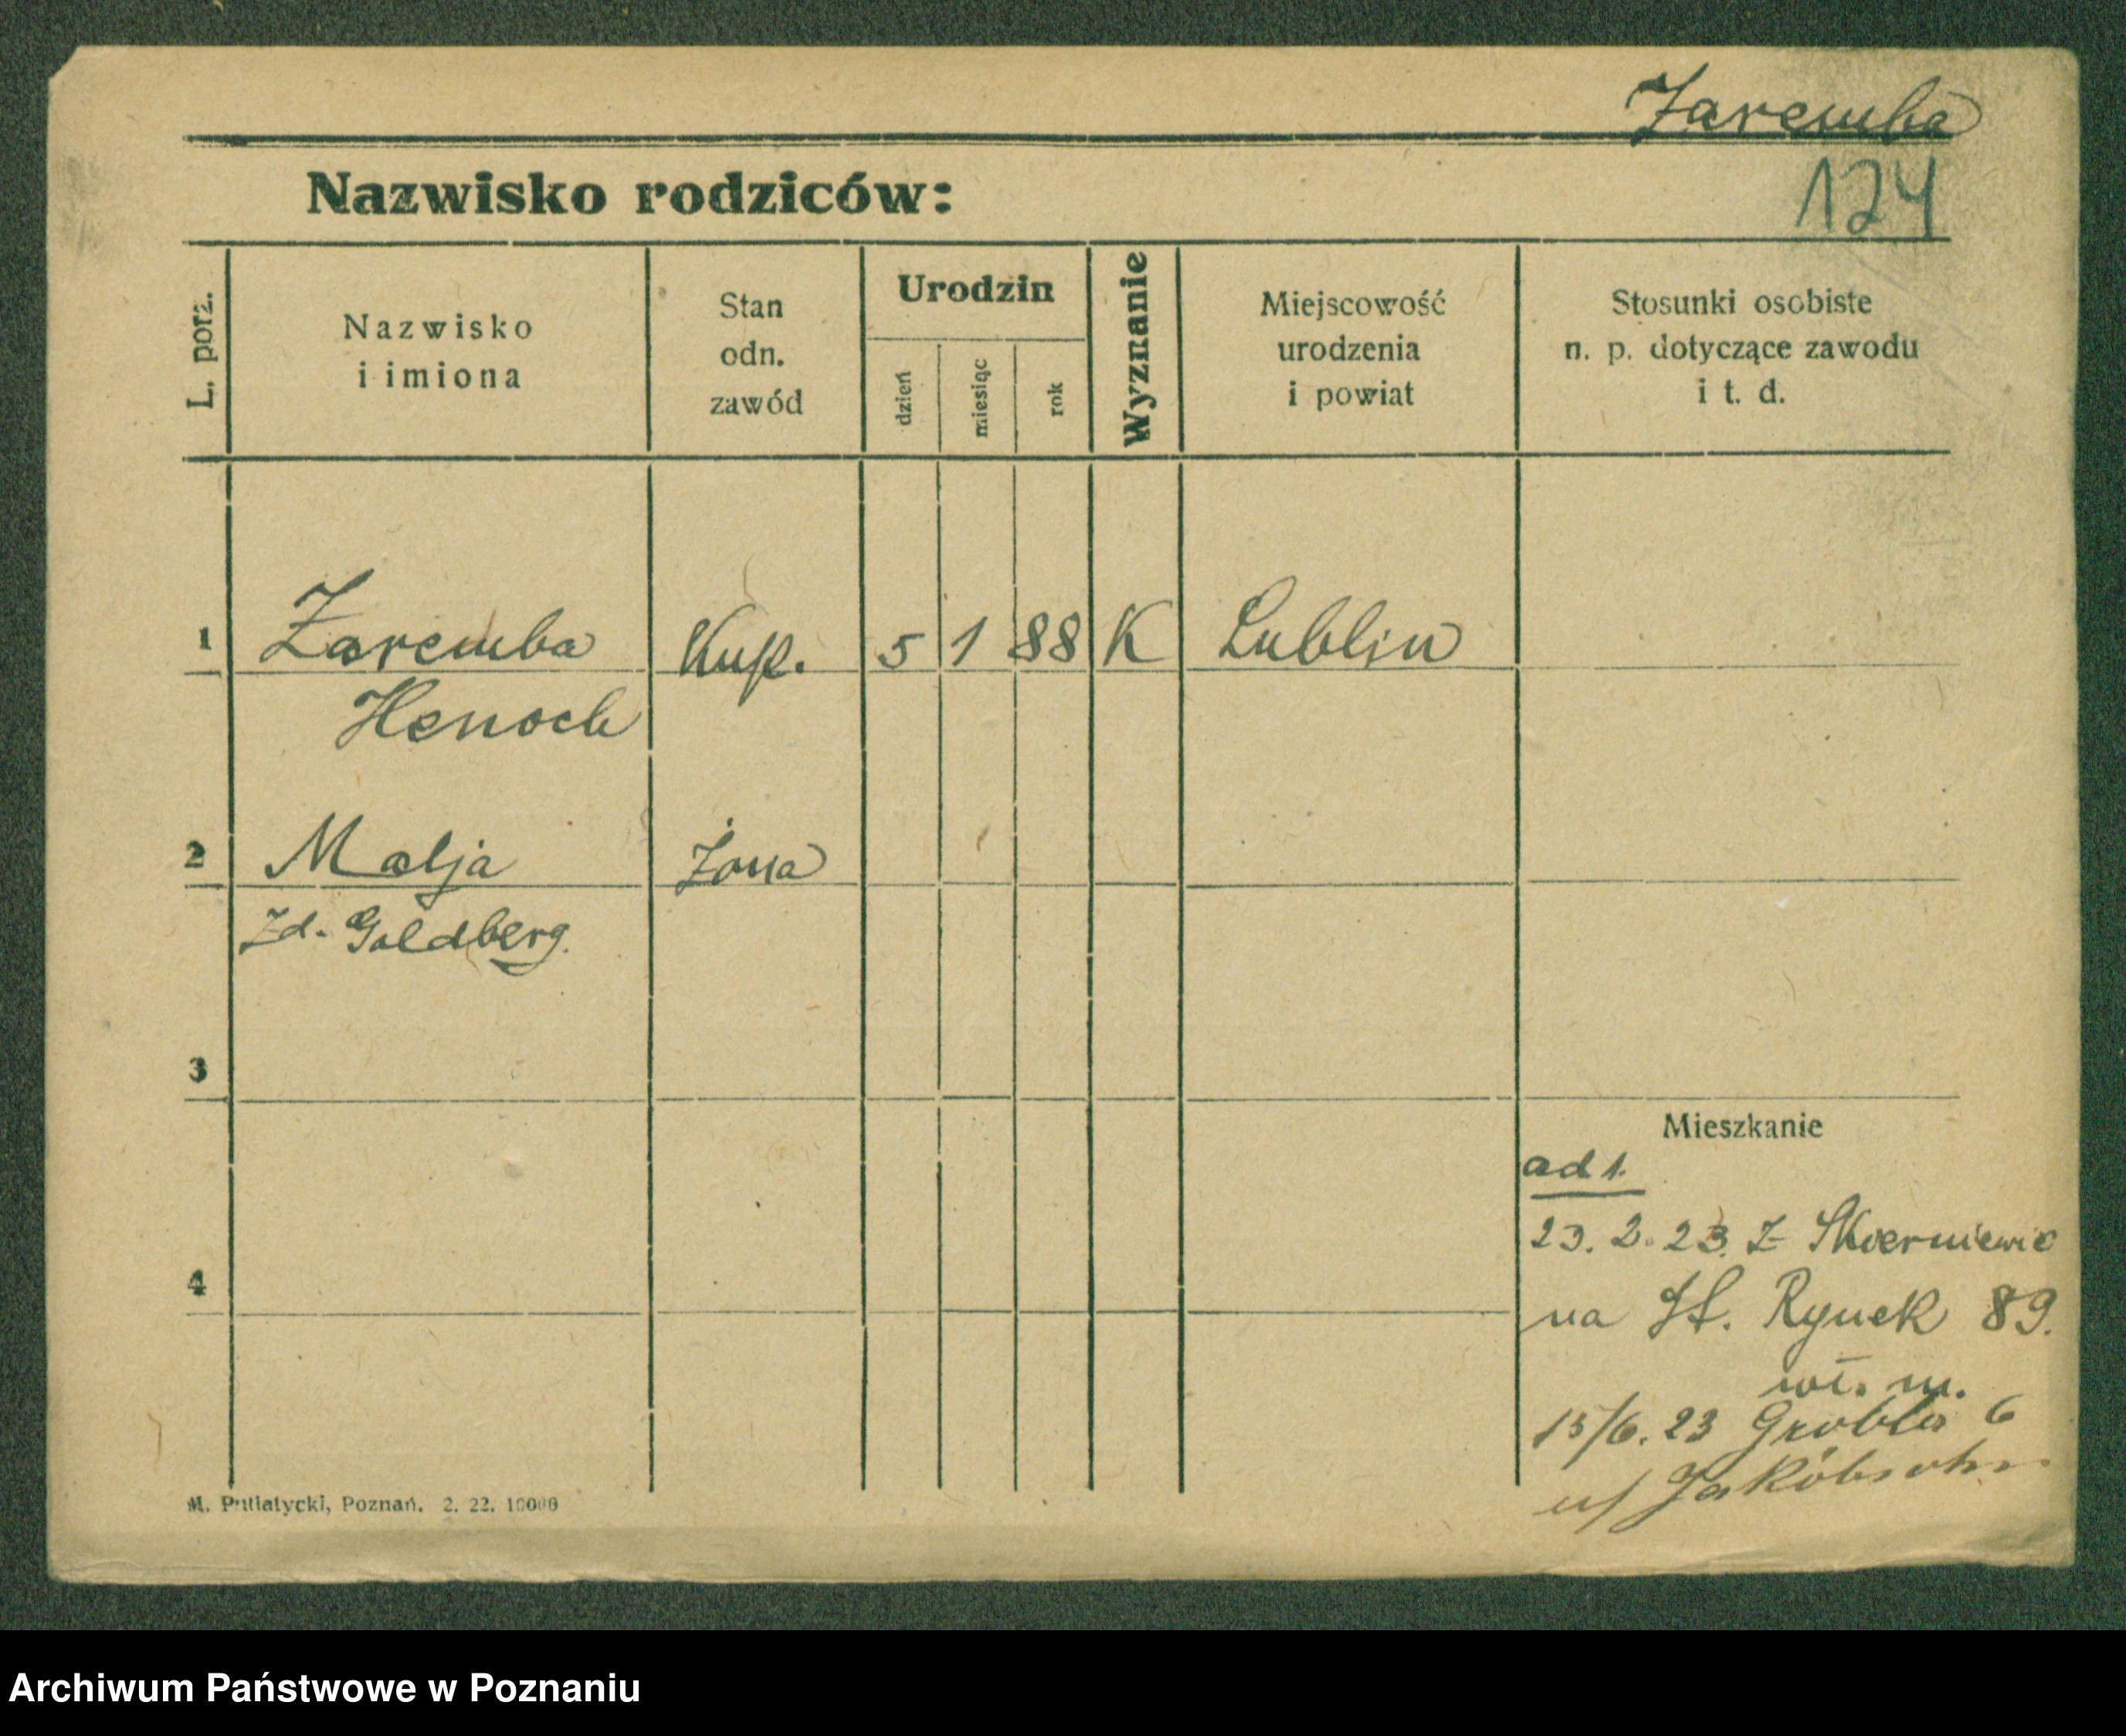 Zaremba
124
Nazwisko rodziców:
L. porz.
Nazwisko
i imiona
Stan
odn.
zawód
Urodzin
dzień
miesiąc
rok
Wyznanie
Miejscowość
urodzenia
i powiat
Stosunki osobiste
n. p. dotyczące zawodu
i t. d.
1 Zaremba Kupc. 5 1 88 K Lublin
Henoch
2 Malja Żona
Zd. Goldberg.
3
Mieszkanie
ad 1.
23. 2. 23. Z Skierniewic
4
na St. Rynek 89.
wł. m.
15/6. 23 Grobla 6
u/ Jakóbsohn
M. Putiatycki, Poznań. 2. 22. 10000
Archiwum Państwowe w Poznaniu